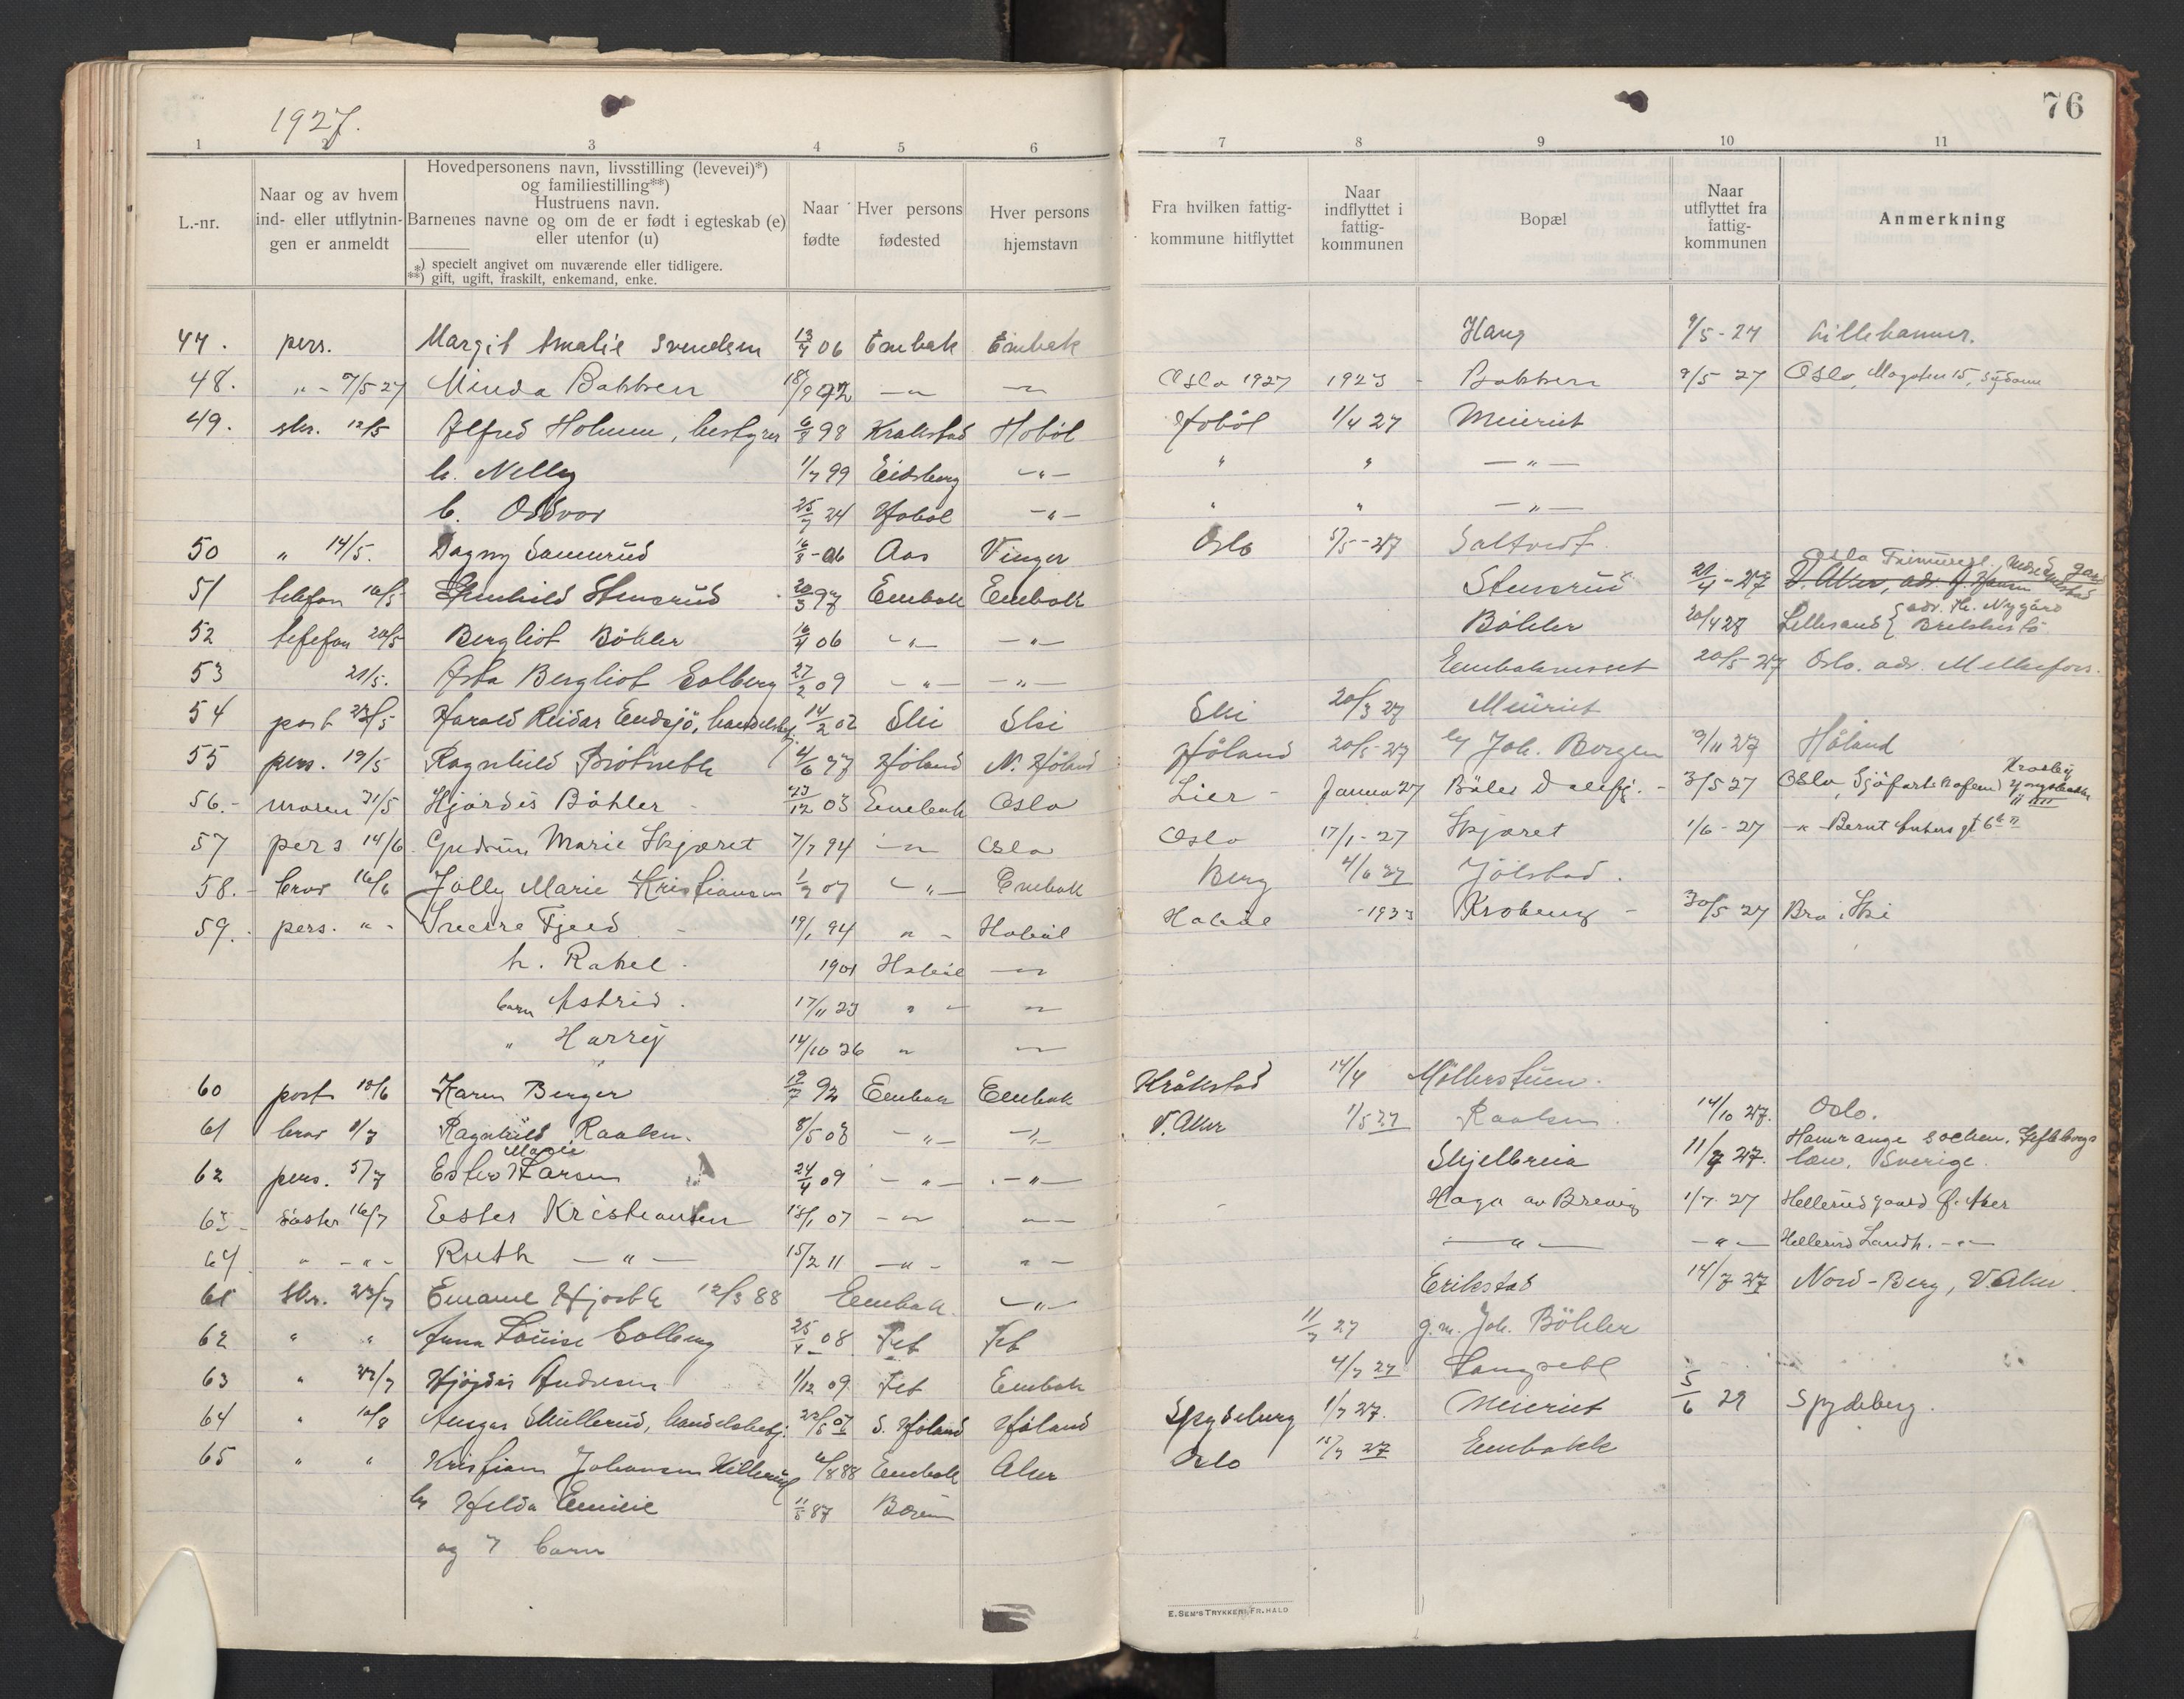 1927.
76
1 2 3 4 5 6 7 8 9 10 11
L.-nr.
Naar og av hvem
ind- eller utflytnin-
gen er anmeldt
Hovedpersonens navn, livsstilling (levevei)*)
og familiestilling**)
Hustruens navn.
Barnenes navne og om de er født i egteskab (e)
eller utenfor (u)
*) specielt angivet om nuværende eller tidligere.
**) gift, ugift, fraskilt, enkemand, enke.
Naar
fødte
Hver persons
fødested
Hver persons
hjemstavn
Fra hvilken fattig-
kommune hitflyttet
Naar
indflyttet i
fattig-
kommunen
Bopæl
Naar
utflyttet fra
fattig-
kommunen
Anmerkning
47. pers. Margit Amalie Svendsen 13/4 06 Enebak Enebak Haug 9/5-27 Lillehammer.
48. "- 7/5 27 Minda Bakken 18/9 92 -"- -"- Oslo 1927 1923 - Bakken 9/5 27 Oslo,
49. skr. 12/5 Alfred Holmen, bestyrer 6/8 98 Kraakstad Hobøl Hobøl 1/4 27 Meieriet
h. Nelly 1/7 99 Eidsberg -"- " " -"-
b. Oddvor 25/7 24 Hobøl -"- " " -"-
50 " 14/5. Dagny Sannerud 16/8-06 Aas Vinger Oslo 5/5-27
51 telefon 16/5 Stensrud 20/3 97 Enebak Enebak Stensrud 21/4-27 V. Aker, adr.
52 telefon 20/5 Bergliot Böhler 16/4 06 -"- -"- Böhler 20/4 27 Lillesand { adr. Th. Nygård
53 21/5. Asta Bergliot Solberg 27/2 09 -"- -"- Enebaknesset 20/5-27 Oslo. adr.
54 post 27/5 Harald Reidar Endsjø, handelsbetj. 14/2 02 Ski Ski Ski 20/3 27 Meieriet
55 pers. 19/5 Ragnhild 4/6 77 Høland N. Høland Høland 20/5-27 Joh. Borgen 9/11 27 Høland
56.- moren 31/5 Hjørdis Böhler 23/12 03 Enebak Oslo Lier - Januar 27 Böler 3/5 27 Oslo,
57 pers 14/6. Gudrun Marie Skjæret 7/7 94 -"- Oslo Oslo 17/1-27 Skjæret 1/6-27 -"- Bernt Ankers gt 6b II
58.- brev 16/6 Jolly Marie Kristiansen 1/7 07 -"- Enebak Berg 4/6 27 Jölstad.
59. pers. "- Sverre Fjeld 19/1 94 "- Hobøl Hobøl -1923 Kroberg - 30/5 27 Bra i Ski
h. Rakel 1901 Hobøl -"-
barn Astrid. 17/11 23 "- -"-
" Harry 14/10 26 " -"-
60 post 10/6 Karen Berger 19/7 92 Enebak Enebak Kråkstad 14/4 Möllerstuen.
61 brev 8/7 Ragnhild Raaken. 8/5 03 -"- -"- V. Aker 1/5 27 Raaken 14/10 27. Oslo.
62 pers. 5/7 Ester Marie Larsen 24/4 09 -"- -"- Skjelbreia 11/7 27. Hamrange socken, Gefleborgs
læn, Sverige.
63 søster 16/7 Ester Kristiansen 18/1 07 -"- -"- Haga av Brevig 1/7-27 Hellerudgaard Ø. Aker
64 " -"- Ruth -"- 15/2 11 -"- "- -"- -"- Hellerud Landh. -"-
61 skr. 23/7 12/3 88 Enebak -"- Erikstad 14/7 27 Nord-Berg, V. Aker.
62 " " Anna Louise Solberg 25/1 08 Fet Fet 11/7 27 g.m. Joh. Böhler
63 " 27/7 Hjørdis Andresen 1/12 09 Fet Enebak 4/7 27 Langsett
64 " 10/8 Ansgar Skullerud, handelsbetj. 22/6 07 S. Høland Høland Spydeberg 1/7 27. Meieriet 5/6 29 Spydeberg.
65 " " Kristian Johansen 6/8 88 Enebak Aker Oslo 15/7 27 Enebakk
h. Helda Emilie 11/5 87 Bærum
og 7 barn
E. SEM'S TRYKKERI, FR.HALD